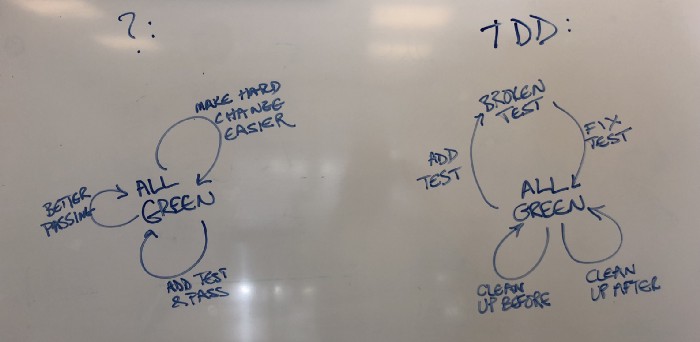 ?:
MAKE HARD
CHANGE
EASIER
ALL
GREEN
BETTER
PASSING
ADD TEST
& PASS
TDD:
BROKEN
TEST
FIX
TEST
ADD
TEST
ALL
GREEN
CLEAN
UP BEFORE
CLEAN
UP AFTER